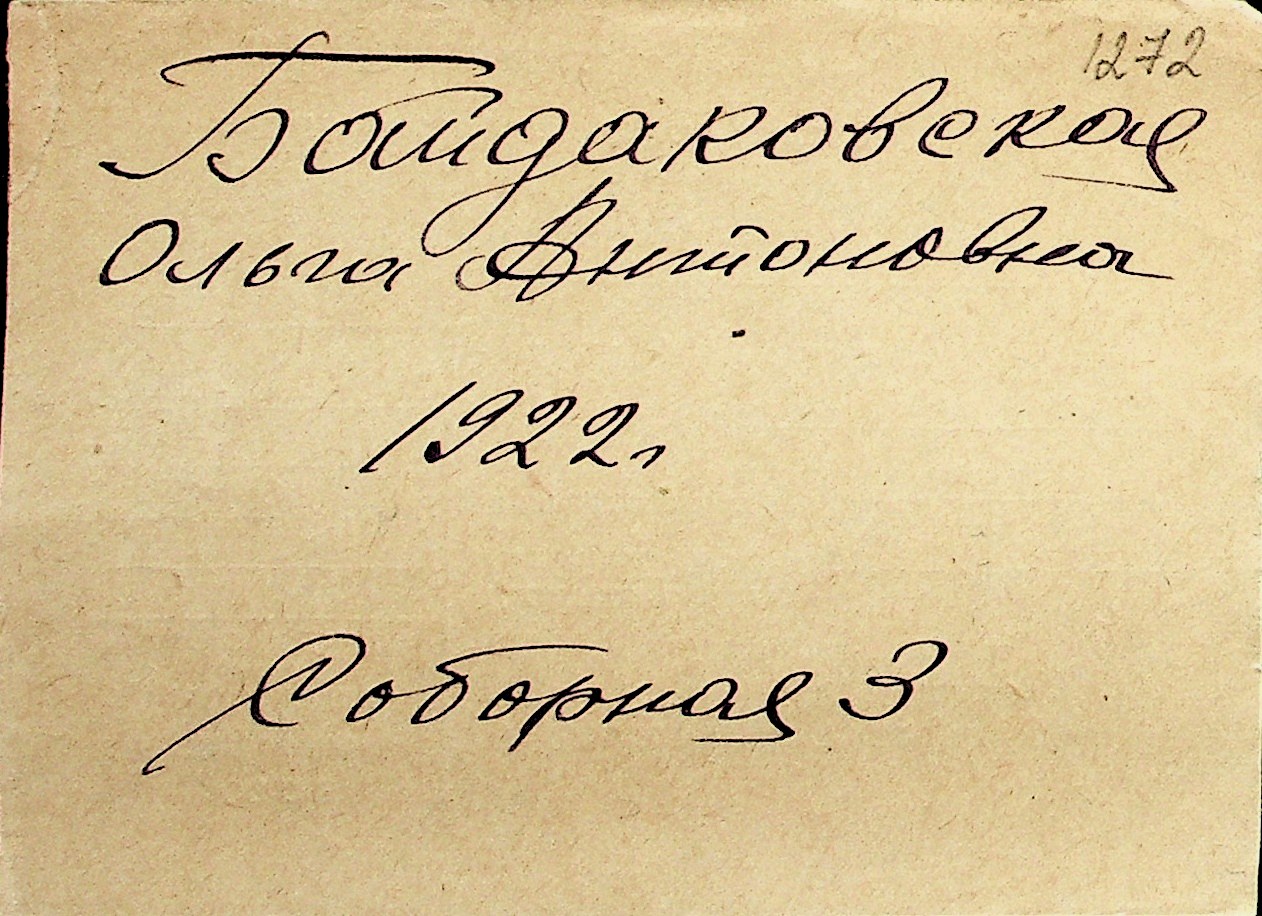 1272
Байдаковская
Ольга Антоновна
1922г
Соборная 3